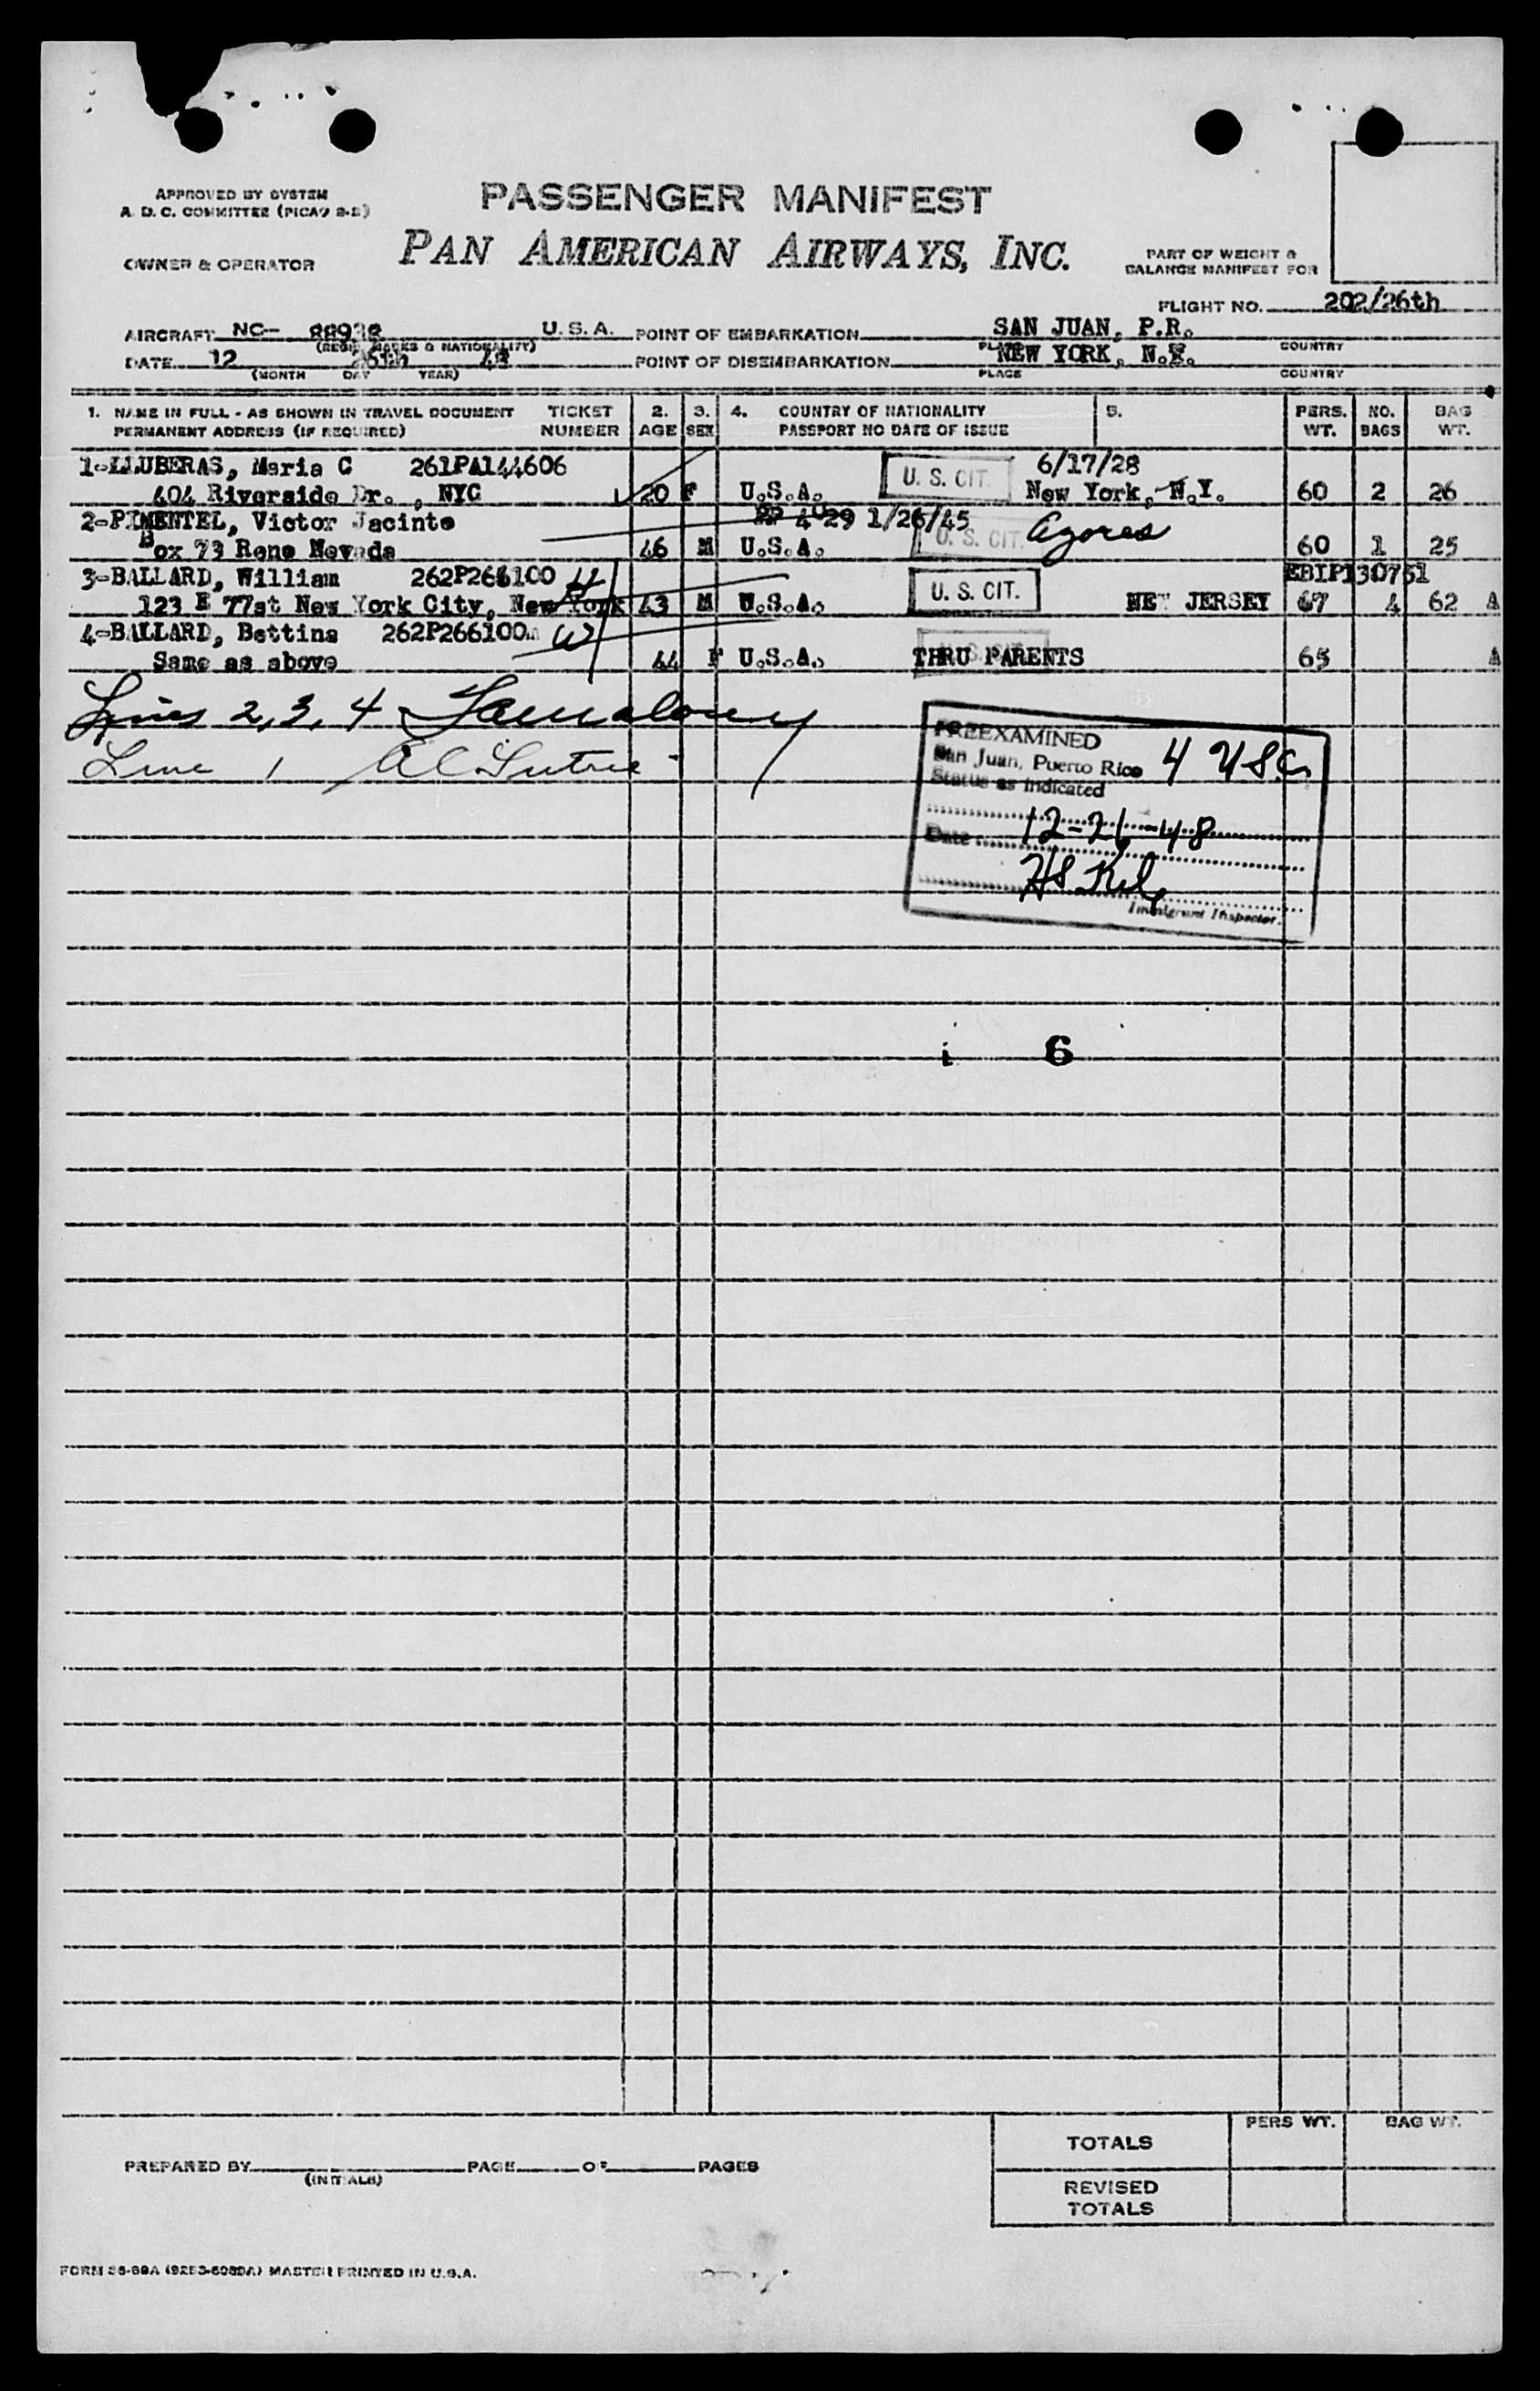 APPROVED BY SYSTEM
A. D. C. COMMITTEE (PICAO 2-2)
PASSENGER MANIFEST
PAN AMERICAN AIRWAYS, INC.
OWNER & OPERATOR
PART OF WEIGHT &
BALANCE MANIFEST FOR
FLIGHT NO. 202/26th
AIRCRAFT NC- 88938 U.S.A. POINT OF EMBARKATION SAN JUAN, P.R.
(REGIS. MARKS & NATIONALITY) PLACE COUNTRY
DATE 12 26th 48 POINT OF DISEMBARKATION NEW YORK, N.Y.
(MONTH DAY YEAR) PLACE COUNTRY
1. NAME IN FULL - AS SHOWN IN TRAVEL DOCUMENT TICKET 2. 3. 4. COUNTRY OF NATIONALITY 5. PERS. NO. BAG
PERMANENT ADDRESS (IF REQUIRED) NUMBER AGE SEX PASSPORT NO DATE OF ISSUE WT. BAGS WT.
1-LLUBERAS, Maria C 261PA144606 U. S. CIT. 6/17/28
404 Riverside Dr. , NYC 20 F U.S.A. New York, N.Y. 60 2 26
2-PIMENTEL, Victor Jacinto 29 1/26/45
Box 73 Reno Nevada 46 M U.S.A. U. S. CIT. Azores 60 1 25
3-BALLARD, William 262P266100 H U. S. CIT. EBIP130751
123 E 77st New York City, New York 43 M U.S.A. NEW JERSEY 67 4 62 A
4-BALLARD, Bettina 262P266100 W
Same as above 44 F U.S.A. THRU PARENTS 65 A
Lines 2, 3, 4
Line 1
PREEXAMINED
San Juan, Puerto Rico 4 USC
Status as indicated
Date 12-26-48
Immigrant Inspector.
i 6
PERS WT. BAG WT.
TOTALS
PREPARED BY PAGE OF PAGES
(INITIALS)
REVISED
TOTALS
MASTER PRINTED IN U.S.A.